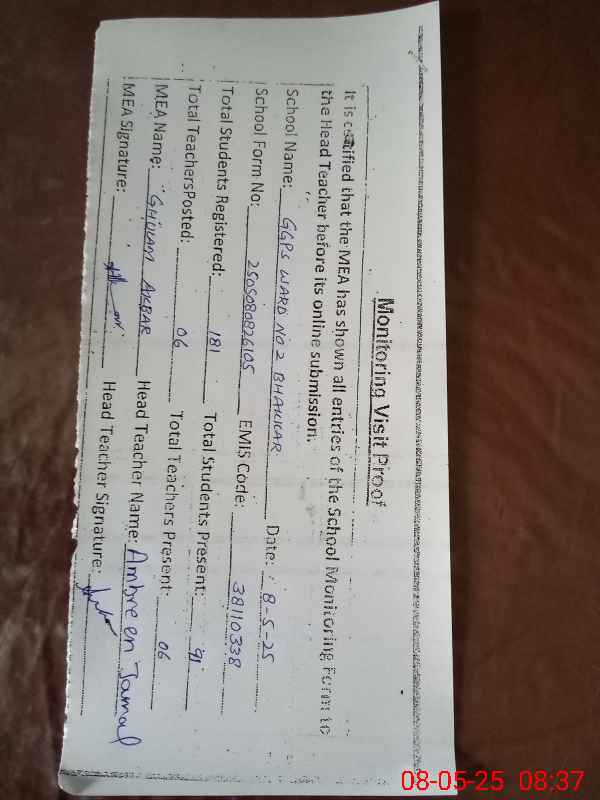 Monitoring Visit Proof
It is certified that the MEA has shown all entries of the School Monitoring Form to
the Head Teacher before its online submission.
School Name: GGPS WARD NO 2 BHAKKAR Date: 8-5-25
School Form No: 2505080826105 EMIS Code: 38110338
Total Students Registered: 181 Total Students Present: 91
Total TeachersPosted: 06 Total Teachers Present: 06
MEA Name: GHULAM AKBAR Head Teacher Name: Ambreen Jamal
MEA Signature: Head Teacher Signature:
08-05-25 08:37